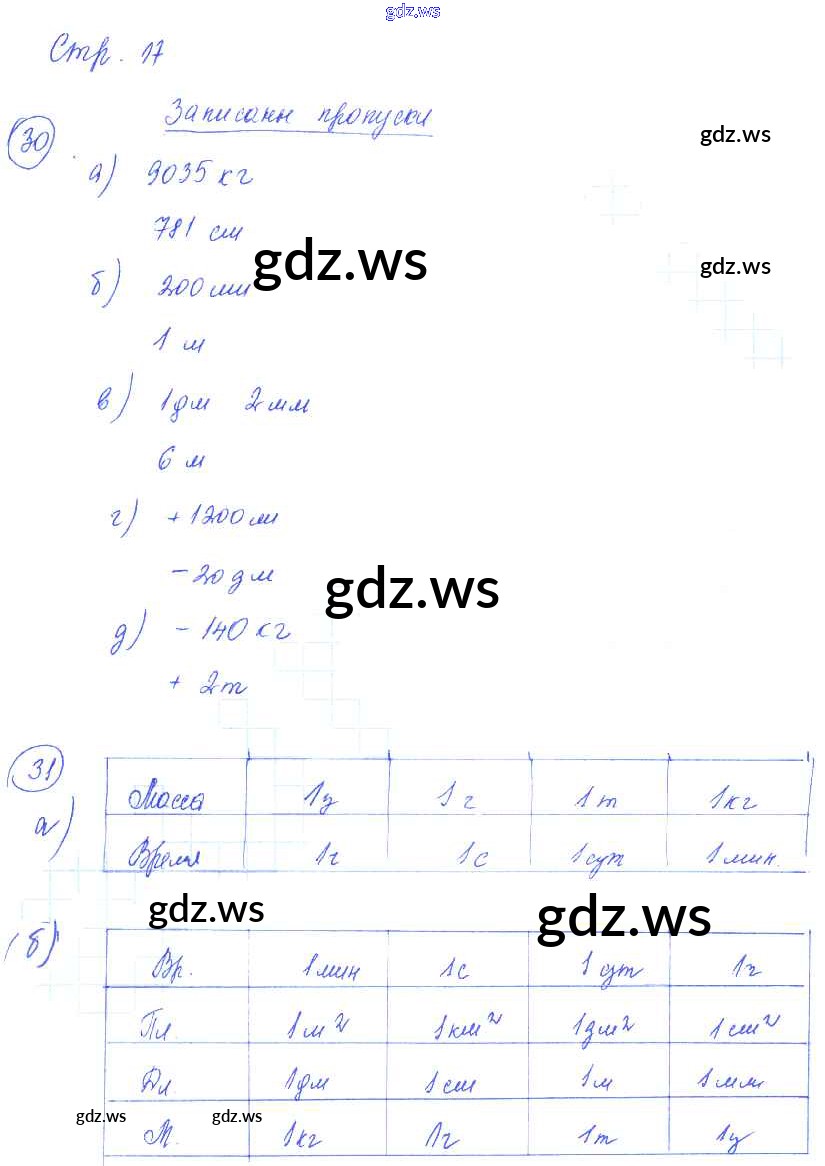 gdz.ws
Стр. 17
Записаны пропуски
30
gdz.ws
а) 9035 кг
781 см
gdz.ws
gdz.ws
б) 200 мм
1 м
в) 1 дм 2 мм
6 м
г) +1200 м
gdz.ws
-20 дм
д) -140 кг
+ 2т
31
а)
Масса 1ц 1г 1т 1кг
Время 1ч 1с 1сут 1мин.
gdz.ws
gdz.ws
(б)
Вр. 1мин 1с 1сут 1ч
Пл. 1м² 1км² 1дм² 1см²
Дл. 1дм 1см 1м 1мм
gdz.ws gdz.ws
М. 1кг 1г 1т 1ц